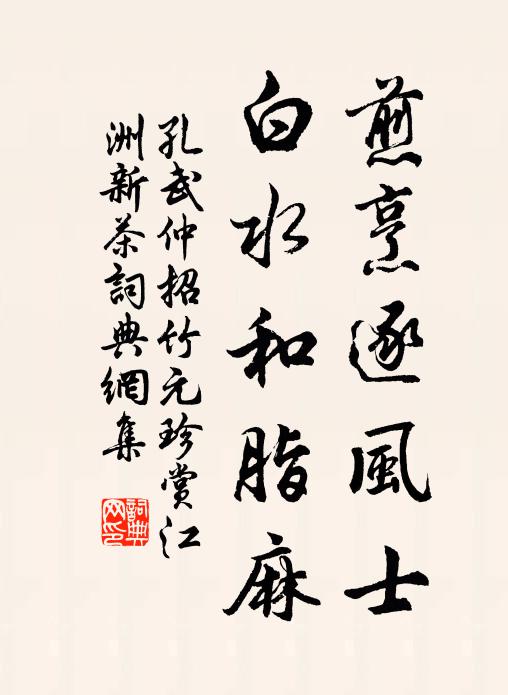 煎烹逐風士
白水和脂麻
孔武仲招竹元珍賞江
洲新茶詞典網集
詞典网印